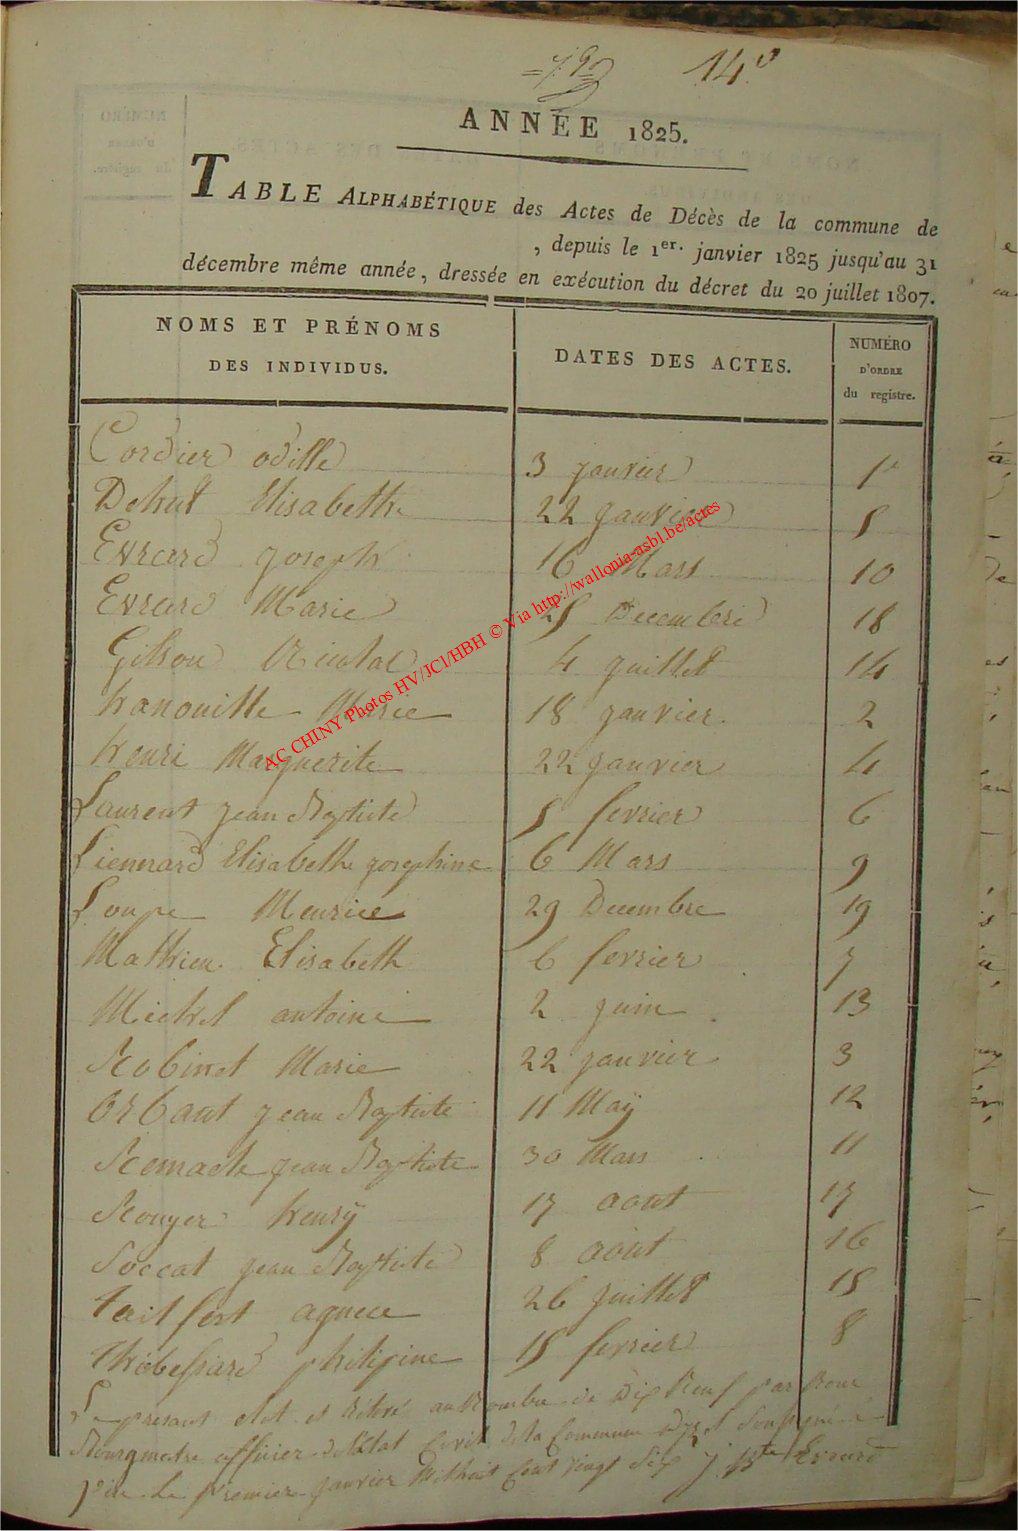 14
ANNÉE 1825.
TABLE ALPHABÉTIQUE des Actes de Décès de la commune de
, depuis le 1er. janvier 1825 jusqu'au 31
décembre même année, dressée en exécution du décret du 20 juillet 1807.
NOMS ET PRÉNOMS DES INDIVIDUS. DATES DES ACTES. NUMÉRO D'ORDRE du registre.
Cordier odille 3 janvier 1
Dehut Elisabeth 22 janvier 5
Evrard joseph 16 Mars 10
Evrard Marie 25 Decembre 18
Gilson Nicolas 4 juillet 14
hanouille Marie 18 janvier 2
henri Marguerite 22 janvier 4
Laurent jean Baptiste 5 fevrier 6
Liennard Elisabeth josephine 6 Mars 9
Loupe Meurice 29 Decembre 19
Mathieu Elisabeth 6 fevrier 7
Michel antoine 2 juin 13
Robinet Marie 22 janvier 3
Orbant jean Baptiste 11 Maÿ 12
Remacle jean Baptiste 30 Mars 11
Rouyer henrÿ 17 aout 17
Soccat jean Baptiste 8 aout 16
taitfert agnece 26 juillet 15
thibessard philipine 15 fevrier 8
Le present etat est délivré au Nombre de Dix Neuf par Nous
Bourgmestre officier de l'Etat Civil de la Commune d' Soussigné
Le Premier janvier Mil huit Cent vingt Six j. Bte Evrard
AC CHINY Photos HV/JCl/HBH © Via http://wallonia-asbl.be/actes